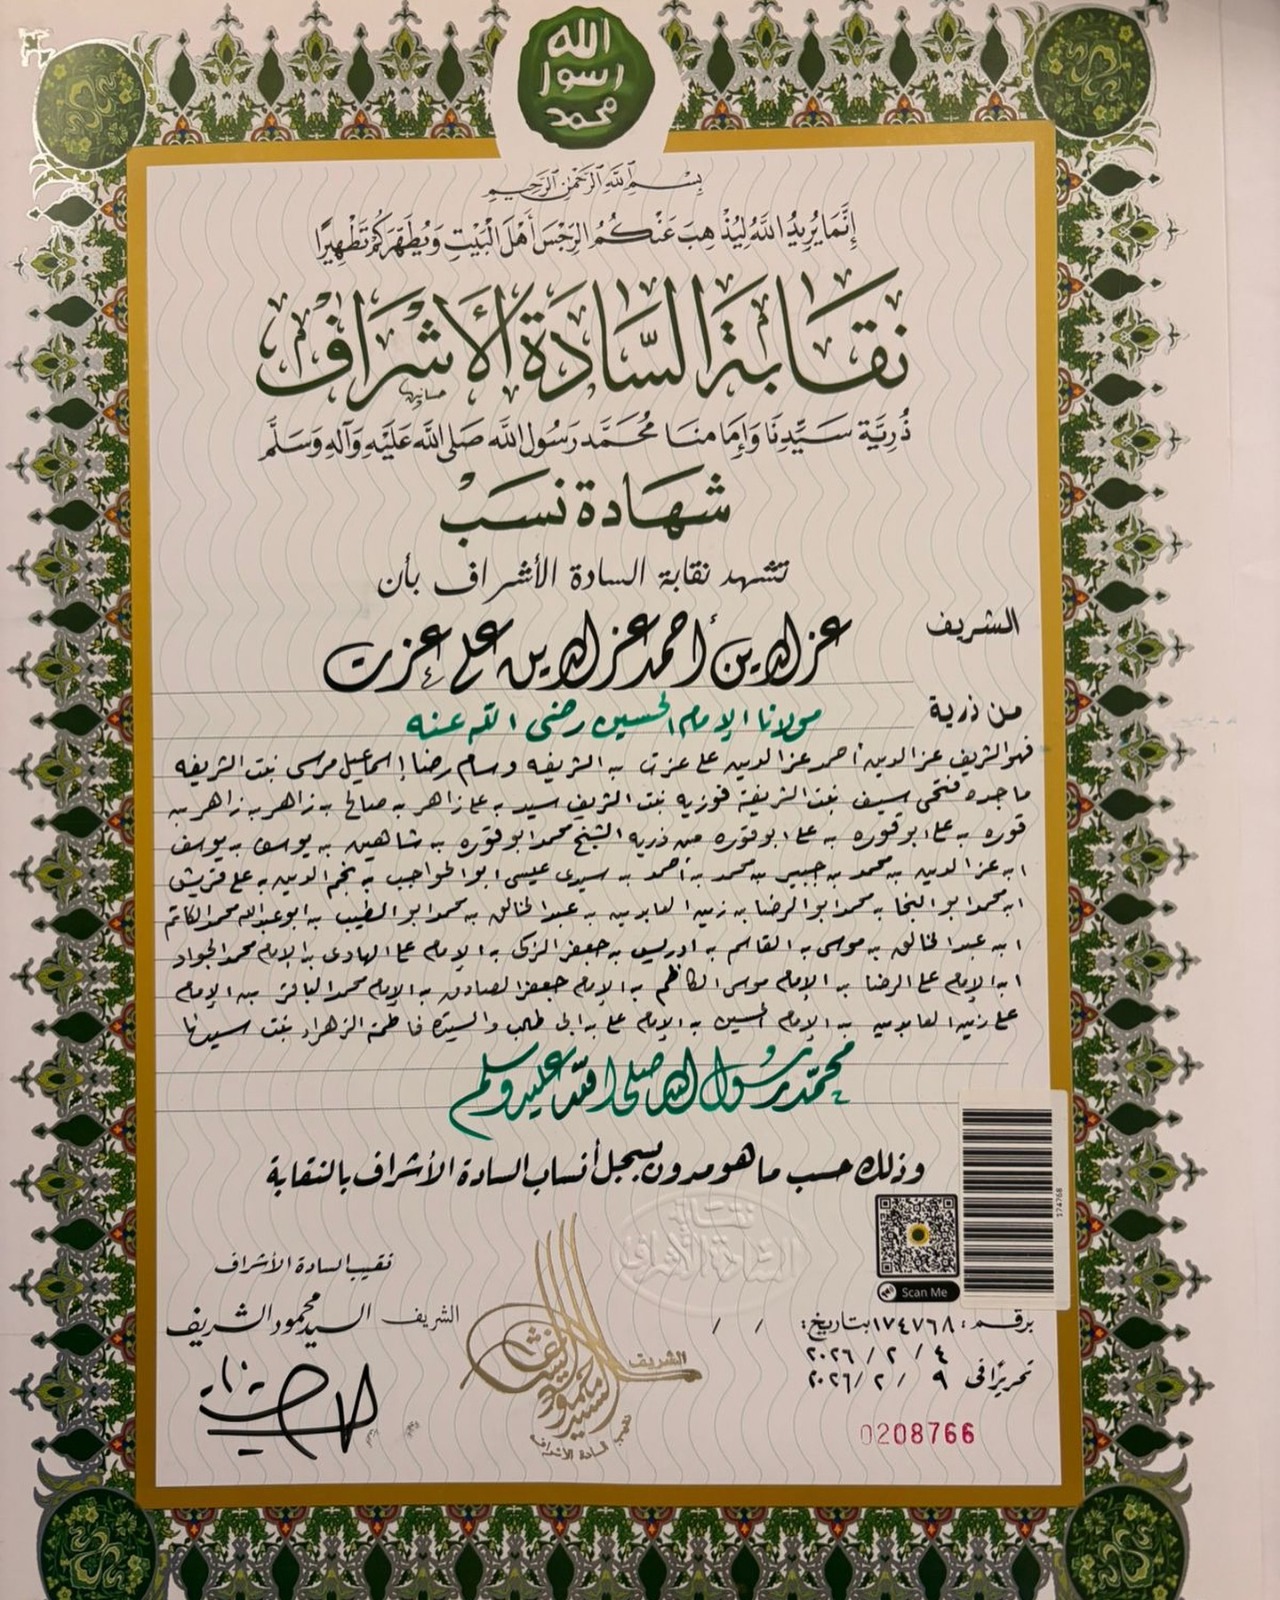 الله
رسول
محمد
بِسْمِ اللَّهِ الرَّحْمَٰنِ الرَّحِيمِ
إِنَّمَا يُرِيدُ اللَّهُ لِيُذْهِبَ عَنْكُمُ الرِّجْسَ أَهْلَ الْبَيْتِ وَيُطَهِّرَكُمْ تَطْهِيرًا
نقابة السادة الأشراف
ذُرِيَّة سَيِّدِنَا وَإِمَامِنَا مُحَمَّد رَسُولِ اللَّه صَلَى اللَّه عَلَيْهِ وَآلِهِ وَسَلَّمَ
شهادة نسب
تشهد نقابة السادة الأشراف بأن
الشريف
عز الدين أحمد عز الدين على عزت
من ذرية
مولانا الإمام الحسين رضى الله عنه
فهو الشريف عز الدين أحمد عز الدين على عزت بن الشريفه وسام رضا إسماعيل مرسى بنت الشريفه
ماجده فتحى سيف بنت الشريفة فوزيه بنت الشريف سيد بن على زاهر بن صالح بن زاهر بن زاهر بن
قوره بن على ابو قوره بن على ابو قوره من ذريه الشيخ محمد ابو قوره بن شاهين بن يوسف بن يوسف
ابن عز الدين بن محمد بن جبير بن محمد بن أحمد بن سيدى عيسى ابو الحواجب بن نجم الدين بن على قريش
ابن محمد ابو النجا بن محمد ابو الرضا بن زين العابدين بن عبد الخالق بن محمد ابو الطيب بن ابو عبد الله محمد الكاتم
ابن عبد الخالق بن موسى بن القاسم بن ادريس بن جعفر الزكى بن الإمام على الهادى بن الإمام محمد الجواد
ابن الإمام على الرضا بن الإمام موسى الكاظم بن الإمام جعفر الصادق بن الإمام محمد الباقر بن الإمام
على زين العابدين بن الإمام الحسين بن الإمام على بن ابى طالب والسيدة فاطمة الزهراء بنت سيدنا
محمد رسول الله صلى الله عليه وسلم
وذلك حسب ما هو مدون بسجل أنساب السادة الأشراف بالنقابة
نقابة
السادة الأشراف
174768
Scan Me
نقيب السادة الأشراف
الشريف السيد محمود الشريف
الشريف
السيد محمود الشريف
نقيب السادة الأشراف
برقم: ١٧٤٧٦٨ بتاريخ: / /
٤ / ٢ / ٢٠٢٦
تحريرًا فى ٩ / ٢ / ٢٠٢٦
0208766